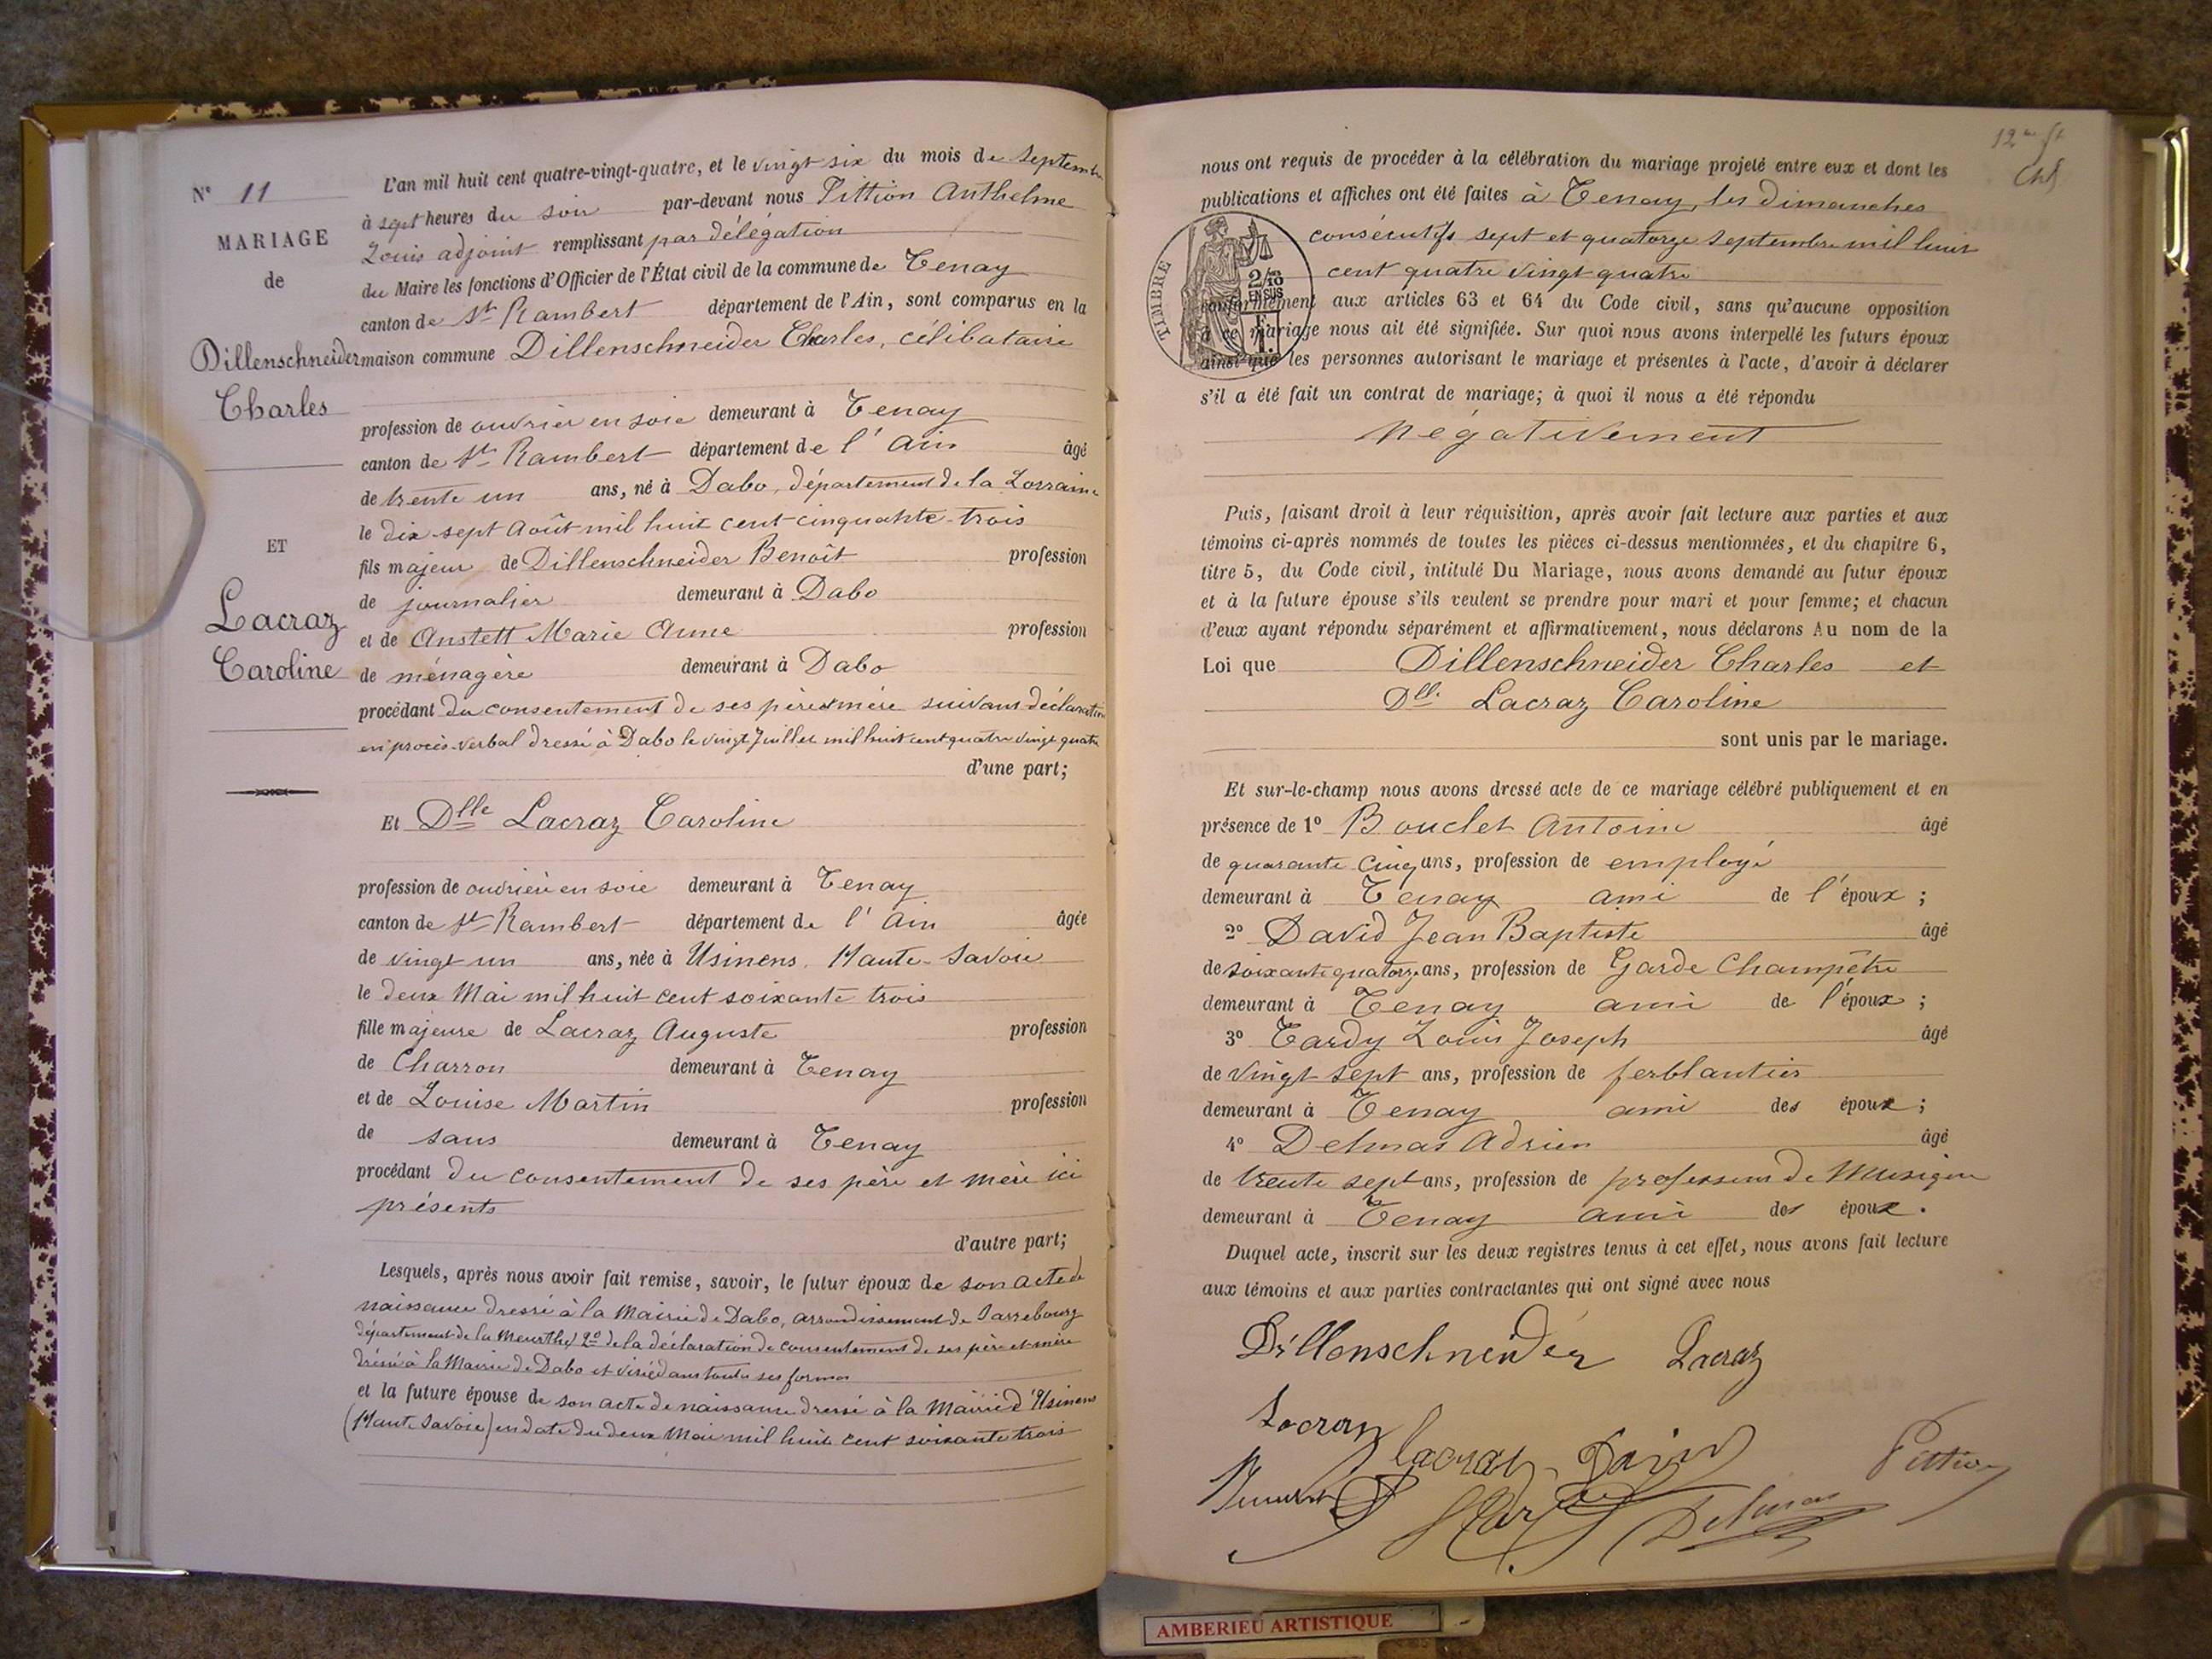 N° 11
MARIAGE
de
Dillenschneider
Charles
ET
Lacraz
Caroline
L'an mil huit cent quatre-vingt-quatre, et le vingt six du mois de Septembre
à sept heures du soir par-devant nous Pittion Anthelme
Louis adjoint remplissant par délégation
du Maire les fonctions d'Officier de l'État civil de la commune de Tenay
canton de St Rambert département de l'Ain, sont comparus en la
maison commune Dillenschneider Charles, célibataire
profession de ouvrier en soie demeurant à Tenay
canton de St Rambert département de l'Ain âgé
de trente un ans, né à Dabo, département de la Lorraine
le dix-sept Août mil huit cent cinquante-trois
fils majeur de Dillenschneider Benoît profession
de journalier demeurant à Dabo
et de Anstett Marie Anne profession
de ménagère demeurant à Dabo
procédant du consentement de ses père et mère suivant déclaration
en procès-verbal dressé à Dabo le vingt Juillet mil huit cent quatre vingt quatre
d'une part;
Et Dlle Lacraz Caroline
profession de ouvrière en soie demeurant à Tenay
canton de St Rambert département de l'Ain âgée
de vingt un ans, née à Usinens Haute-Savoie
le deux Mai mil huit cent soixante trois
fille majeure de Lacraz Auguste profession
de Charron demeurant à Tenay
et de Louise Martin profession
de sans demeurant à Tenay
procédant du consentement de ses père et mère ici
présents
d'autre part;
Lesquels, après nous avoir fait remise, savoir, le futur époux de son acte de
naissance dressé à la Mairie de Dabo, arrondissement de Sarrebourg
département de la Meurthe, 2° de la déclaration de consentement de ses père et mère
dressé à la Mairie de Dabo et visé dans toutes ses formes
et la future épouse de son acte de naissance dressé à la Mairie d'Usinens
(Haute Savoie) en date du deux Mai mil huit cent soixante trois
nous ont requis de procéder à la célébration du mariage projeté entre eux et dont les
publications et affiches ont été faites à Tenay, les dimanches
consécutifs sept et quatorze Septembre mil huit
cent quatre vingt quatre
TIMBRE
2/10
EN SUS
conformément aux articles 63 et 64 du Code civil, sans qu'aucune opposition
à ce mariage nous ait été signifiée. Sur quoi nous avons interpellé les futurs époux
ainsi que les personnes autorisant le mariage et présentes à l'acte, d'avoir à déclarer
s'il a été fait un contrat de mariage; à quoi il nous a été répondu
négativement
Puis, faisant droit à leur réquisition, après avoir fait lecture aux parties et aux
témoins ci-après nommés de toutes les pièces ci-dessus mentionnées, et du chapitre 6,
titre 5, du Code civil, intitulé Du Mariage, nous avons demandé au futur époux
et à la future épouse s'ils veulent se prendre pour mari et pour femme; et chacun
d'eux ayant répondu séparément et affirmativement, nous déclarons Au nom de la
Loi que Dillenschneider Charles et
Dlle Lacraz Caroline
sont unis par le mariage.
Et sur-le-champ nous avons dressé acte de ce mariage célébré publiquement et en
présence de 1° Bouclet Antoine âgé
de quarante cinq ans, profession de employé
demeurant à Tenay ami de l'époux;
2° David Jean Baptiste âgé
de soixante quatorze ans, profession de Garde Champêtre
demeurant à Tenay ami de l'époux;
3° Tardy Louis Joseph âgé
de vingt sept ans, profession de ferblantier
demeurant à Tenay ami des époux;
4° Delmas Adrien âgé
de trente sept ans, profession de professeur de Musique
demeurant à Tenay ami des époux.
Duquel acte, inscrit sur les deux registres tenus à cet effet, nous avons fait lecture
aux témoins et aux parties contractantes qui ont signé avec nous
Dillenschneider Lacraz
lacraz David Pittion
Delmas
AMBERIEU ARTISTIQUE